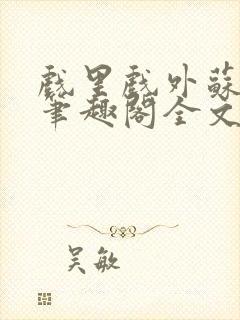 戲里戲外蘇
筆趣閣全文
吴敏